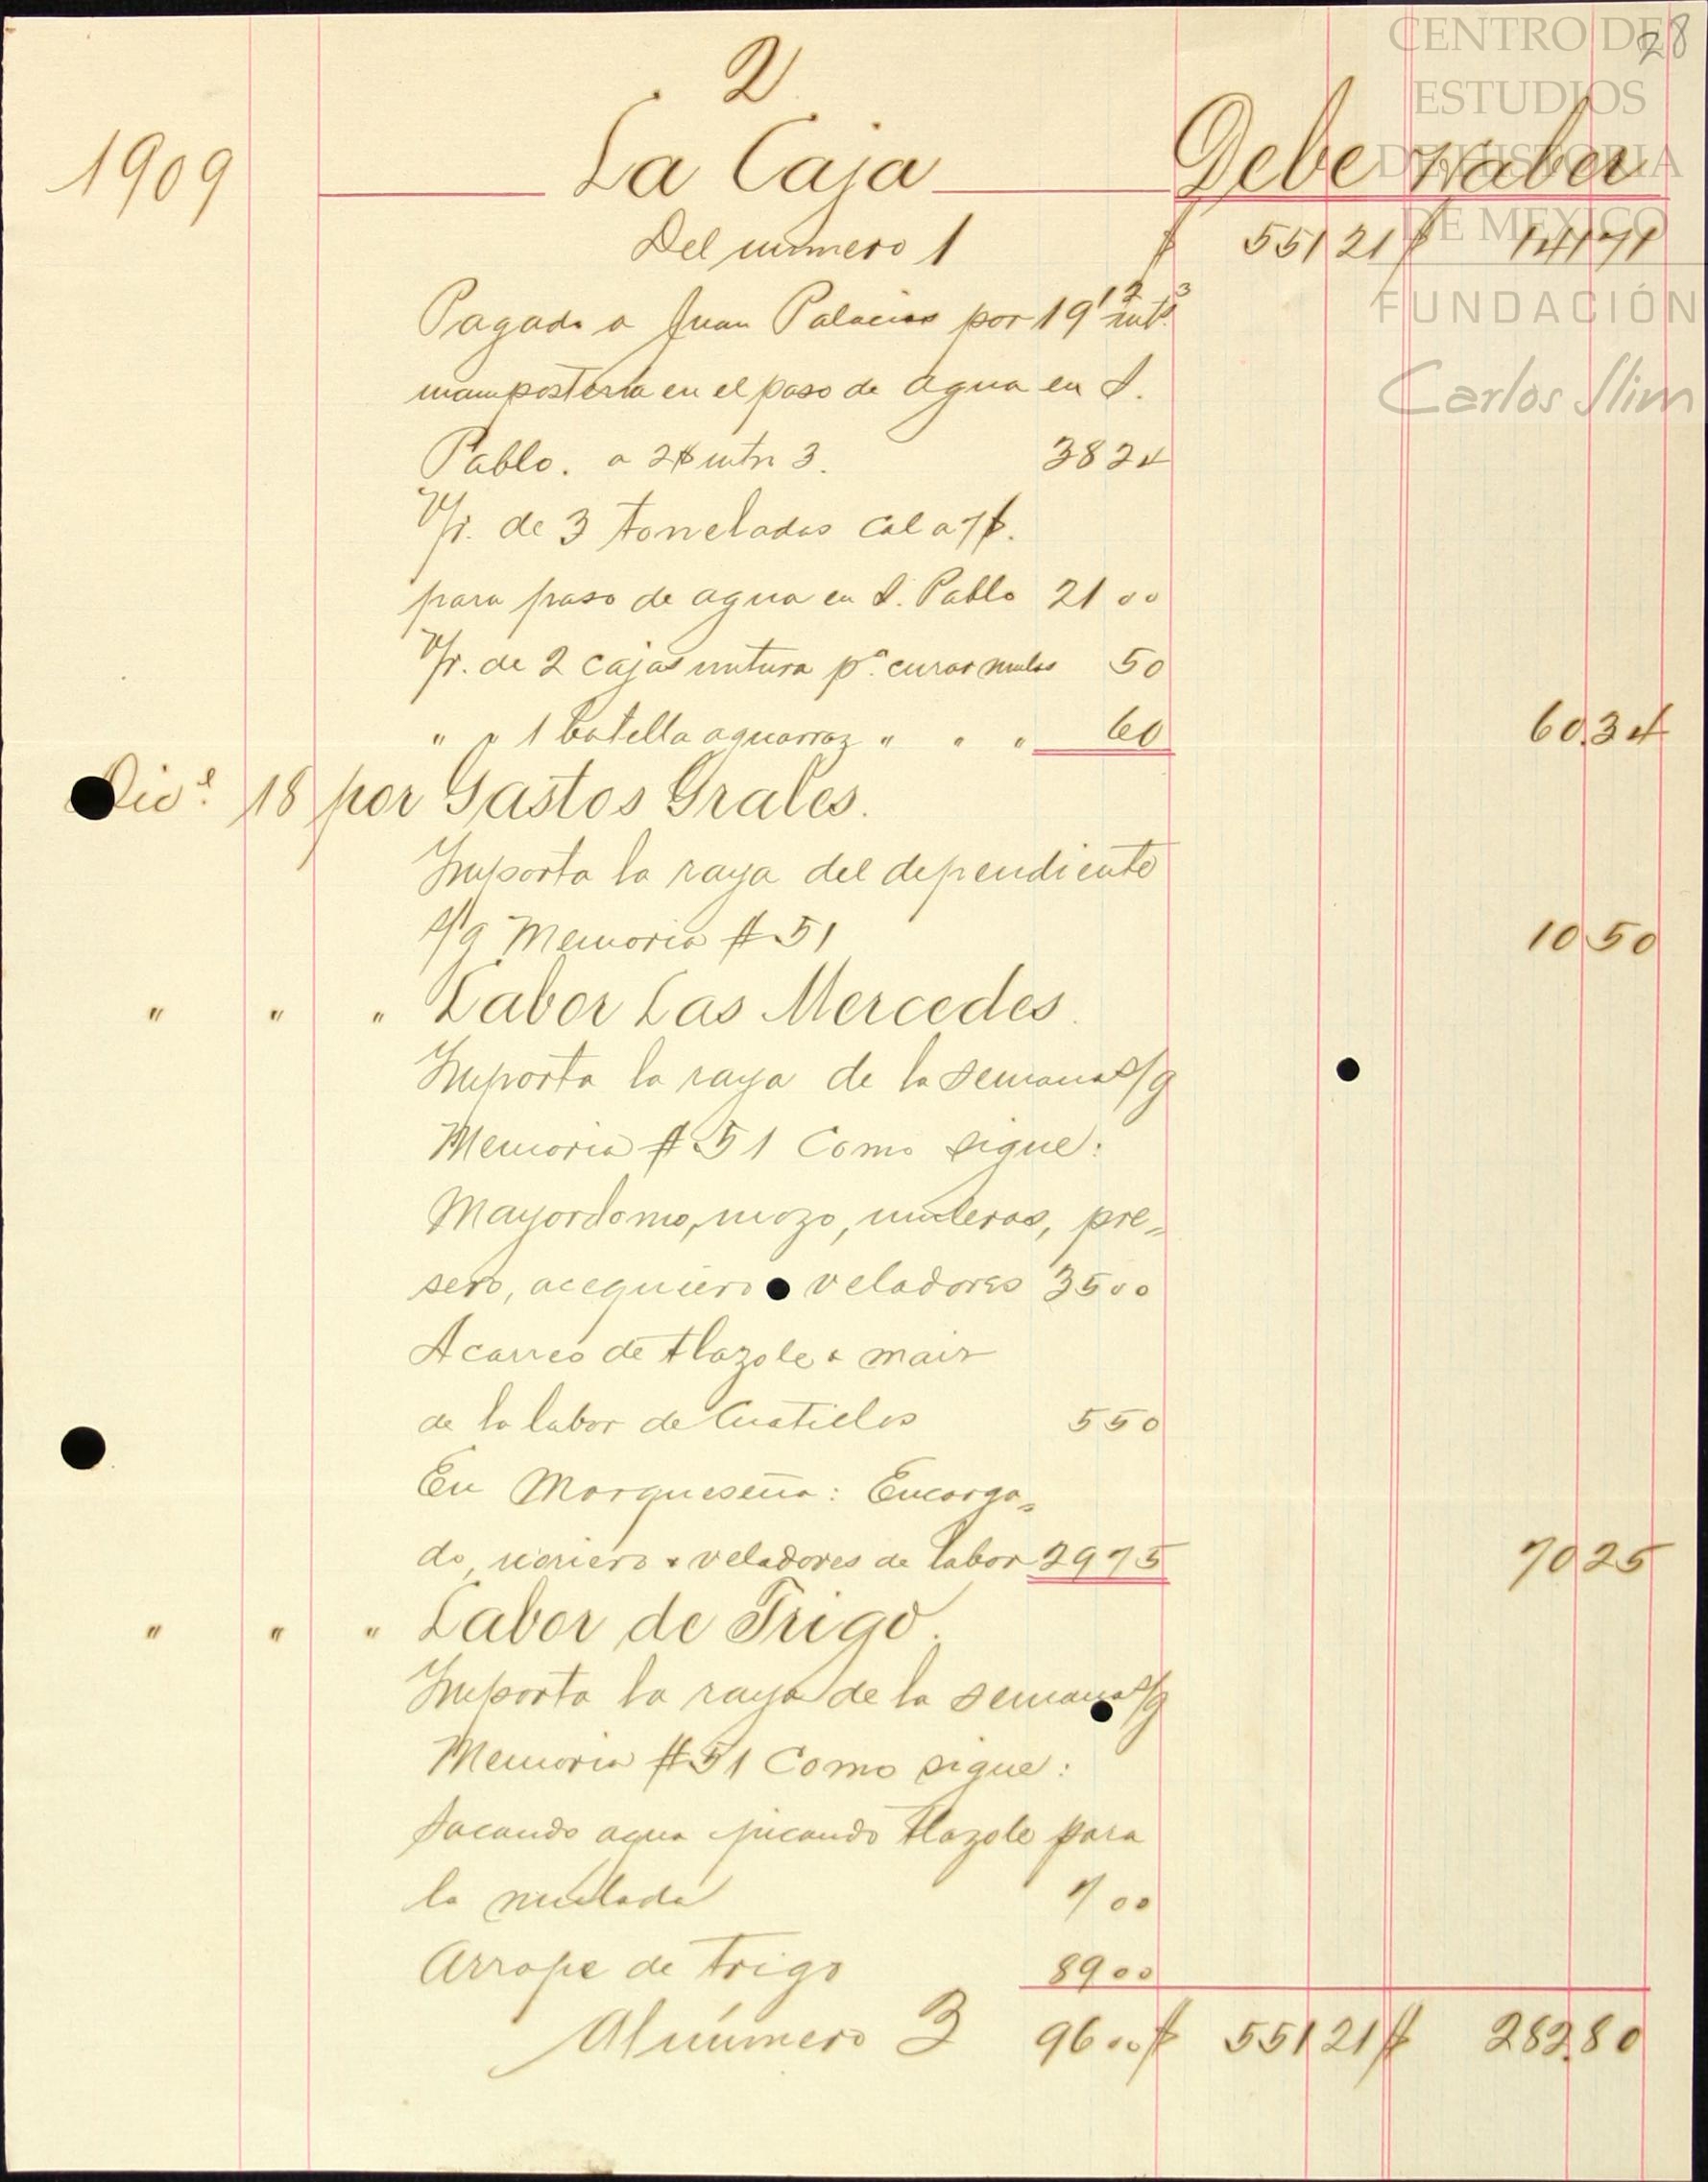 28
CENTRO DE
ESTUDIOS
DE HISTORIA
DE MEXICO
FUNDACIÓN
Carlos Slim
2
1909 La Caja Debe Haber
Del número 1 $ 551 21 $ 141 71
Pagado a Juan Palacios por 19 12 mts 3
mampostería en el paso de agua en S.
Pablo. a 2$ mtr 3. 38 24
V/r. de 3 toneladas cal a 7$.
para paso de agua en S. Pablo 21 00
V/r. de 2 cajas untura pa. curar mulas 50
" " 1 botella aguarraz " " " 60 60.34
Dice. 18 por Gastos Grales.
Importa la raya del dependiente
s/g Memoria # 51 10 50
" " " Labor Las Mercedes.
Importa la raya de la semana s/g
Memoria # 51 Como sigue:
Mayordomo, mozo, muleros, pre=
sero, acequiero veladores 35 00
Acarreo de tlazole & maiz
de la labor de 5 50
En Marqueseña: Encarga=
do, noriero & veladores de labor 29 75 70 25
" " " Labor de Trigo.
Importa la raya de la semana s/g
Memoria # 51 Como sigue:
Sacando agua picando tlazole para
la mulada 7 00
Arrope de trigo 89 00
Al número 3 96 00 $ 551 21 $ 282.80